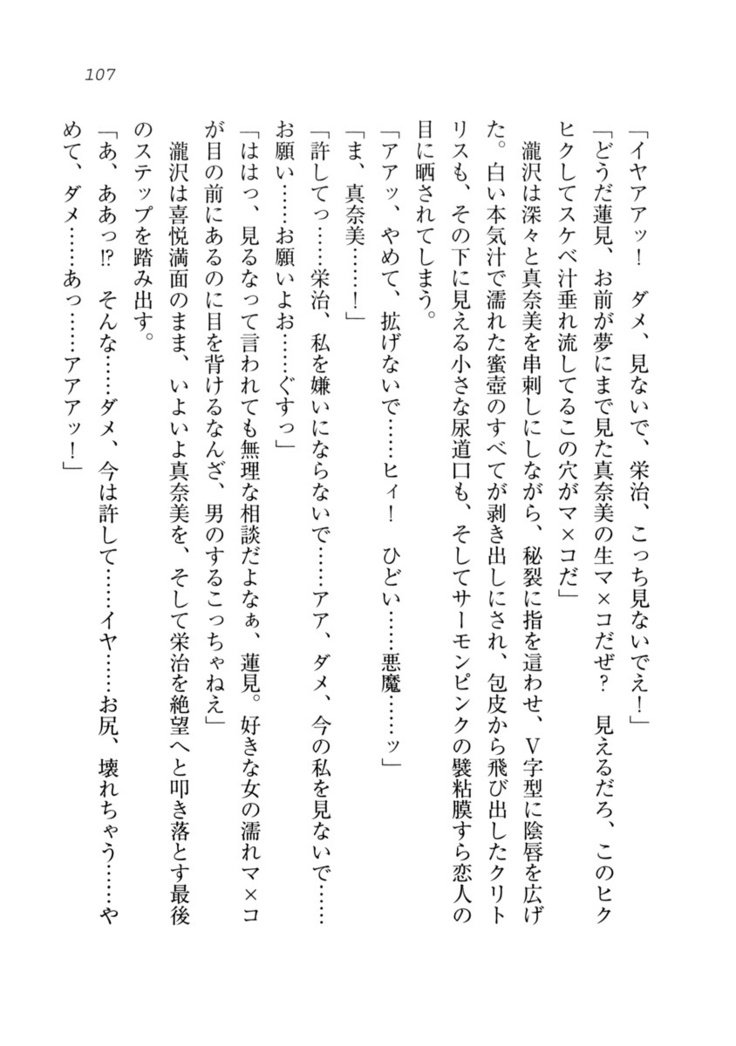 107
「イヤアアッ！　ダメ、見ないで、栄治、こっち見ないでえ！」
「どうだ蓮見、お前が夢にまで見た真奈美の生マ×コだぜ？　見えるだろ、このヒク
ヒクしてスケベ汁垂れ流してるこの穴がマ×コだ」
　瀧沢は深々と真奈美を串刺しにしながら、秘裂に指を這わせ、Ｖ字型に陰唇を広げ
た。白い本気汁で濡れた蜜壺のすべてが剥き出しにされ、包皮から飛び出したクリト
リスも、その下に見える小さな尿道口も、そしてサーモンピンクの襞粘膜すら恋人の
目に晒されてしまう。
「アアッ、やめて、拡げないで……ヒィ！　ひどい……悪魔……ッ」
「ま、真奈美……！」
「許してっ……栄治、私を嫌いにならないで……アア、ダメ、今の私を見ないで……
お願い……お願いよお……ぐすっ」
「ははっ、見るなって言われても無理な相談だよなぁ、蓮見。好きな女の濡れマ×コ
が目の前にあるのに目を背けるなんざ、男のするこっちゃねえ」
　瀧沢は喜悦満面のまま、いよいよ真奈美を、そして栄治を絶望へと叩き落とす最後
のステップを踏み出す。
「あ、ああっ!?　そんな……ダメ、今は許して……イヤ……お尻、壊れちゃう……や
めて、ダメ……あっ……アアアッ！」